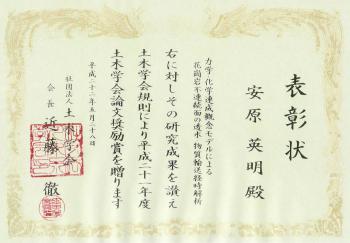 表彰状
安原英明殿
力学・化学連成概念モデルによる
花崗岩不連続面の透水・物質輸送経時解析
右に対しその研究成果を讃え
土木学会規則により平成二十一年度
土木学会論文奨励賞を贈ります
平成二十二年五月二十八日
社団法人土木学会
会長近藤徹